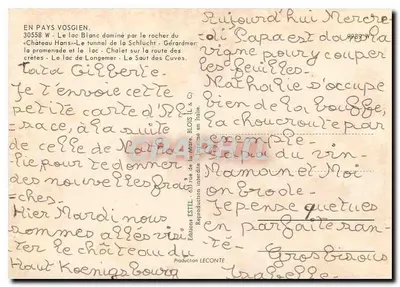 EN PAYS VOSGIEN.
30558 W - Le lac Blanc dominé par le rocher du
«Château Hans» - Le tunnel de la Schlucht - Gérardmer
la promenade et le lac - Chalet sur la route des
crêtes - Le lac de Longemer - Le Saut des Cuves.
Tata Gilberte.
Je t'envoie cette
petite carte d'Al-
sace, à la suite
de celle de
lie pour te donner
des nouvelles fraî-
ches.
Hier Mardi nous
sommes allés visi-
ter le château du
Haut Koenigsbourg
Editions ESTEL
Reproduction interdite
Production LECONTE
Aujourd'hui Mercre-
di Papa est dans la
vigne pour y couper
les feuilles.
Nathalie s'occupe
bien de la bouffe,
la choucroute par
exemple.
du vin
Maman et Moi
on brode.
Je pense que tu es
en parfaite san-
té.
Gros bisous
Isabelle